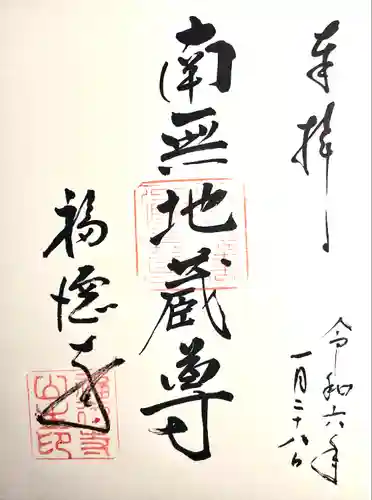 奉拝
令和六年
一月二十八日
南無地蔵尊
福徳寺